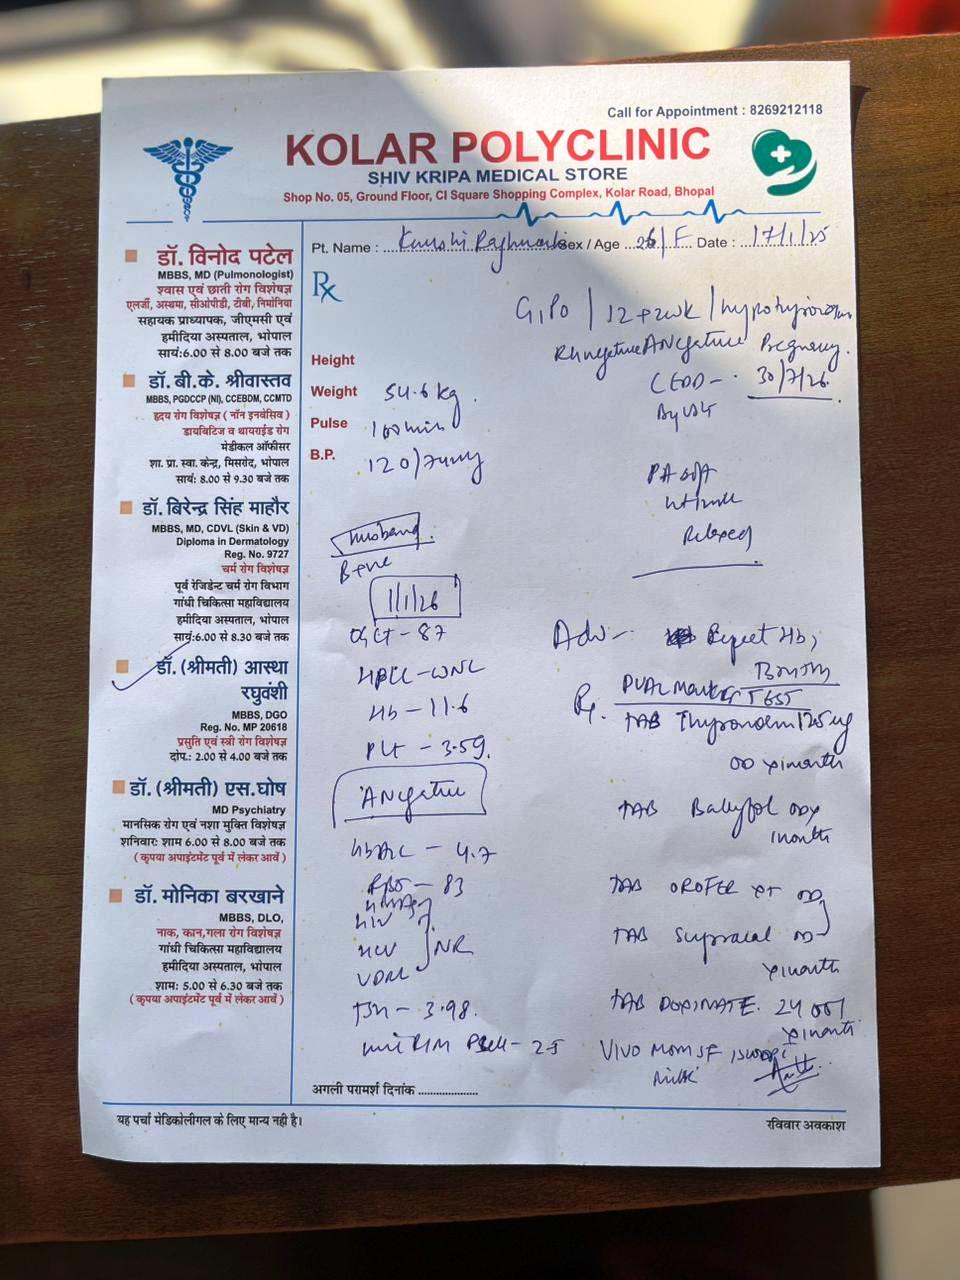 Call for Appointment : 8269212118
KOLAR POLYCLINIC
SHIV KRIPA MEDICAL STORE
Shop No. 05, Ground Floor, CI Square Shopping Complex, Kolar Road, Bhopal
Pt. Name : Sex / Age 26/F Date : 17/1/25
डॉ. विनोद पटेल
MBBS, MD (Pulmonologist)
श्वास एवं छाती रोग विशेषज्ञ
एलर्जी, अस्थमा, सीओपीडी, टीबी, निमोनिया
सहायक प्राध्यापक, जीएमसी एवं
हमीदिया अस्पताल, भोपाल
सायं:6.00 से 8.00 बजे तक
डॉ. बी.के. श्रीवास्तव
MBBS, PGDCCP (NI), CCEBDM, CCMTD
हृदय रोग विशेषज्ञ ( नॉन इनवेसिव )
डायबिटिज व थायराईड रोग
मेडीकल ऑफीसर
शा. प्रा. स्वा. केन्द्र, मिसरोद, भोपाल
सायं: 8.00 से 9.30 बजे तक
डॉ. बिरेन्द्र सिंह माहौर
MBBS, MD, CDVL (Skin & VD)
Diploma in Dermatology
Reg. No. 9727
चर्म रोग विशेषज्ञ
पूर्व रेजिडेन्ट चर्म रोग विभाग
गांधी चिकित्सा महाविद्यालय
हमीदिया अस्पताल, भोपाल
सायं:6.00 से 8.30 बजे तक
डॉ. (श्रीमती) आस्था
रघुवंशी
MBBS, DGO
Reg. No. MP 20618
प्रसुति एवं स्त्री रोग विशेषज्ञ
दोप.: 2.00 से 4.00 बजे तक
डॉ. (श्रीमती) एस. घोष
MD Psychiatry
मानसिक रोग एवं नशा मुक्ति विशेषज्ञ
शनिवार: शाम 6.00 से 8.00 बजे तक
( कृपया अपाइंटमेंट पूर्व में लेकर आवें )
डॉ. मोनिका बरखाने
MBBS, DLO,
नाक, कान,गला रोग विशेषज्ञ
गांधी चिकित्सा महाविद्यालय
हमीदिया अस्पताल, भोपाल
शाम: 5.00 से 6.30 बजे तक
( कृपया अपाइंटमेंट पूर्व में लेकर आवें )
Rx
Height
Weight 54.6 kg
Pulse
B.P.
Husband
B+ve
1/1/26
OGCT - 87
HPLC - WNL
Hb - 11.6
PLT - 3.59
A Negative
HbA1c - 4.7
RBS - 83
HIV
HCV NR
VDRL
TSH - 3.98
G1P0 / 12+2wk / hypothyroidism
Rh negative A Negative Pregnancy
CEDD - 30/7/26
PA soft
Relaxed
Adv - Repeet Hb,
DUAL Marker TEST
TAB 125 ug
OD x 1 month
TAB OD x
1 month
TAB OROFER XT OD
TAB Supracal OD
x 1 month
TAB DOXINATE 24 OD
x 1 month
VIVO MOM SF
milk
अगली परामर्श दिनांक ....................
यह पर्चा मेडिकोलीगल के लिए मान्य नही है।
रविवार अवकाश